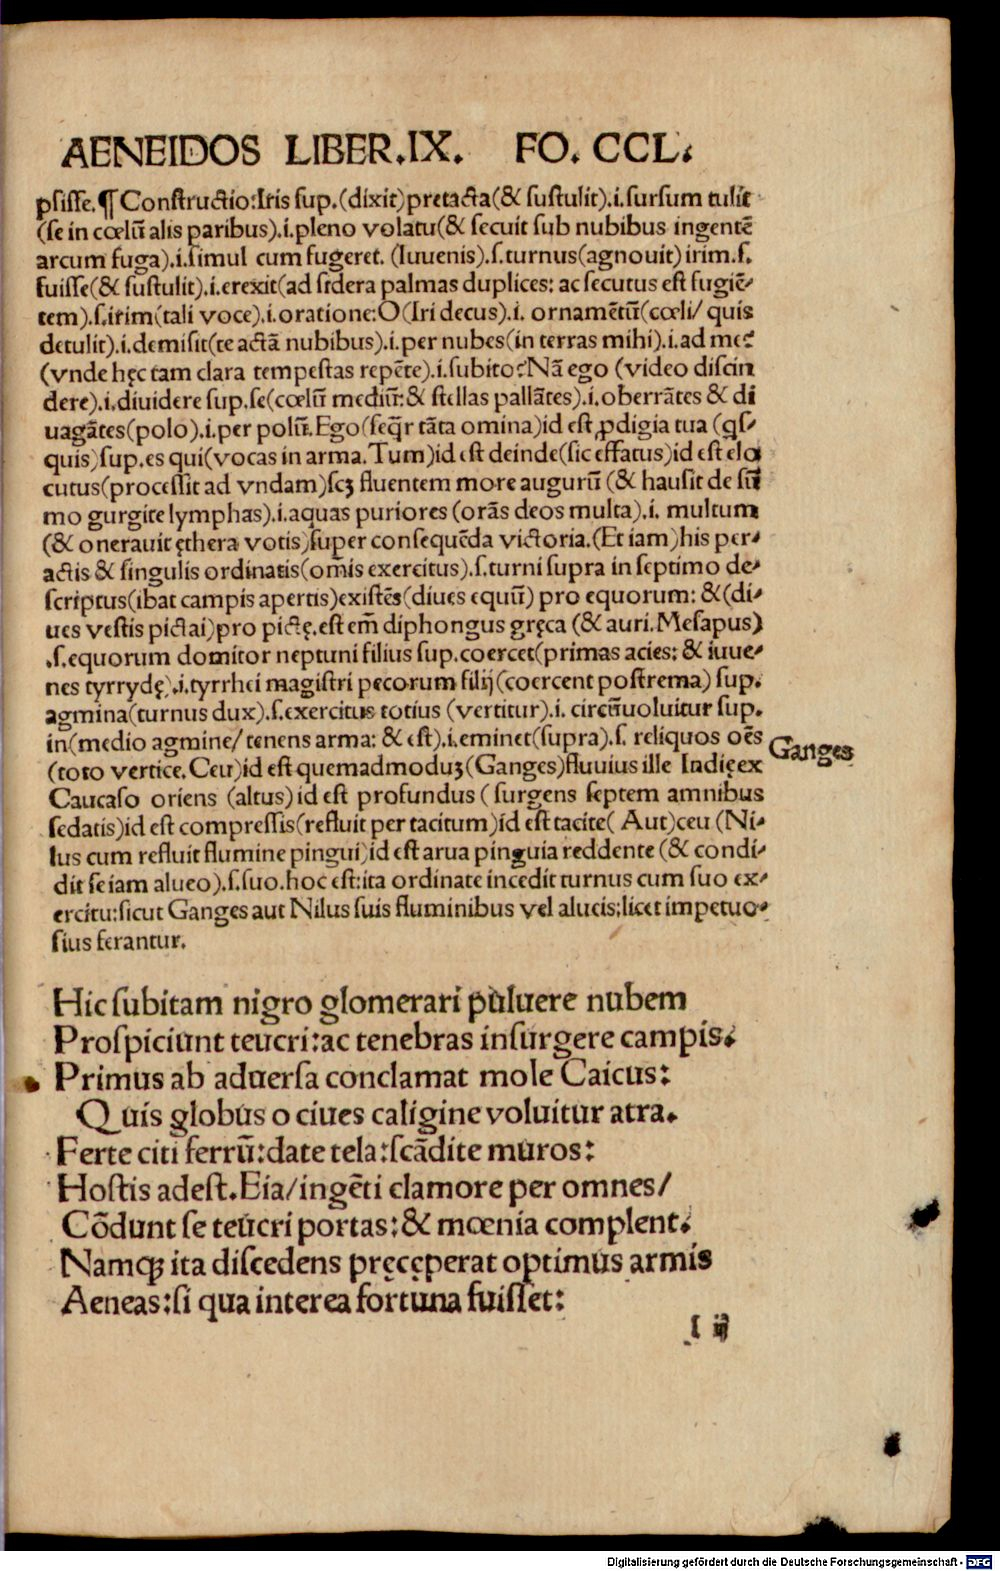 AENEIDOS LIBER.IX. FO. CCL.
psisse.¶ Constructio:Iris sup.(dixit)pretacta(& sustulit).i.sursum tulit
(se in cœlū alis paribus).i.pleno volatu(& secuit sub nubibus ingentē
arcum fuga).i.simul cum fugeret. (Iuuenis).s.turnus(agnouit) irim.s.
fuisse(& sustulit).i.erexit(ad sidera palmas duplices: ac secutus est fugiē-
tem).s.irim(tali voce).i.oratione:O(Iri decus).i. ornamētū(cœli/ quis
detulit).i.demisit(te actā nubibus).i.per nubes(in terras mihi).i.ad me:
(vnde hęc tam clara tempestas repēte).i.subito?Nā ego (video discin
dere).i.diuidere sup.se(cœlū mediū:& stellas pallātes).i.oberrātes & di
uagātes(polo).i.per polū.Ego(seq̄r tāta omina)id est ꝓdigia tua (qs-
quis)sup.es qui(vocas in arma.Tum)id est deinde(sic effatus)id est elo
cutus(processit ad vndam)scꝫ fluentem more augurū (& hausit de sū
mo gurgite lymphas).i.aquas puriores (orās deos multa).i. multum
(& onerauit ęthera votis)super consequēda victoria.(Et iam)his per-
actis & singulis ordinatis(om̄is exercitus).s.turni supra in septimo de-
scriptus(ibat campis apertis)existēs(diues equū) pro equorum: &(di-
ues vestis pictai)pro pictę.est em̄ diphongus gręca (& auri.Mesapus)
.s.equorum domitor neptuni filius sup.coercet(primas acies: & iuue-
nes tyrrydę).i.tyrrhei magistri pecorum filij(coercent postrema) sup.
agmina(turnus dux).s.exercitus totius (vertitur).i. circūuoluitur sup.
in(medio agmine/ tenens arma: & est).i.eminet(supra).s. reliquos oēs
Ganges
(toto vertice.Ceu)id est quemadmoduꝫ(Ganges)fluuius ille Indię ex
Caucaso oriens (altus)id est profundus (surgens septem amnibus
sedatis)id est compressis(refluit per tacitum)id est tacite( Aut)ceu (Ni-
lus cum refluit flumine pingui)id est arua pinguia reddente (& condi-
dit se iam alueo).s.suo.hoc est:ita ordinate incedit turnus cum suo ex-
ercitu:sicut Ganges aut Nilus suis fluminibus vel alueis:licet impetuo-
sius ferantur.
Hic subitam nigro glomerari puluere nubem
Prospiciunt teucri:ac tenebras insurgere campis.
Primus ab aduersa conclamat mole Caicus:
Quis globus o ciues caligine voluitur atra.
Ferte citi ferrū:date tela:scādite muros:
Hostis adest.Eia/ingēti clamore per omnes/
Cōdunt se teucri portas:& mœnia complent.
Namqꝫ ita discedens pręcęperat optimus armis
Aeneas:si qua interea fortuna fuisset:
I iij
Digitalisierung gefördert durch die Deutsche Forschungsgemeinschaft - DFG